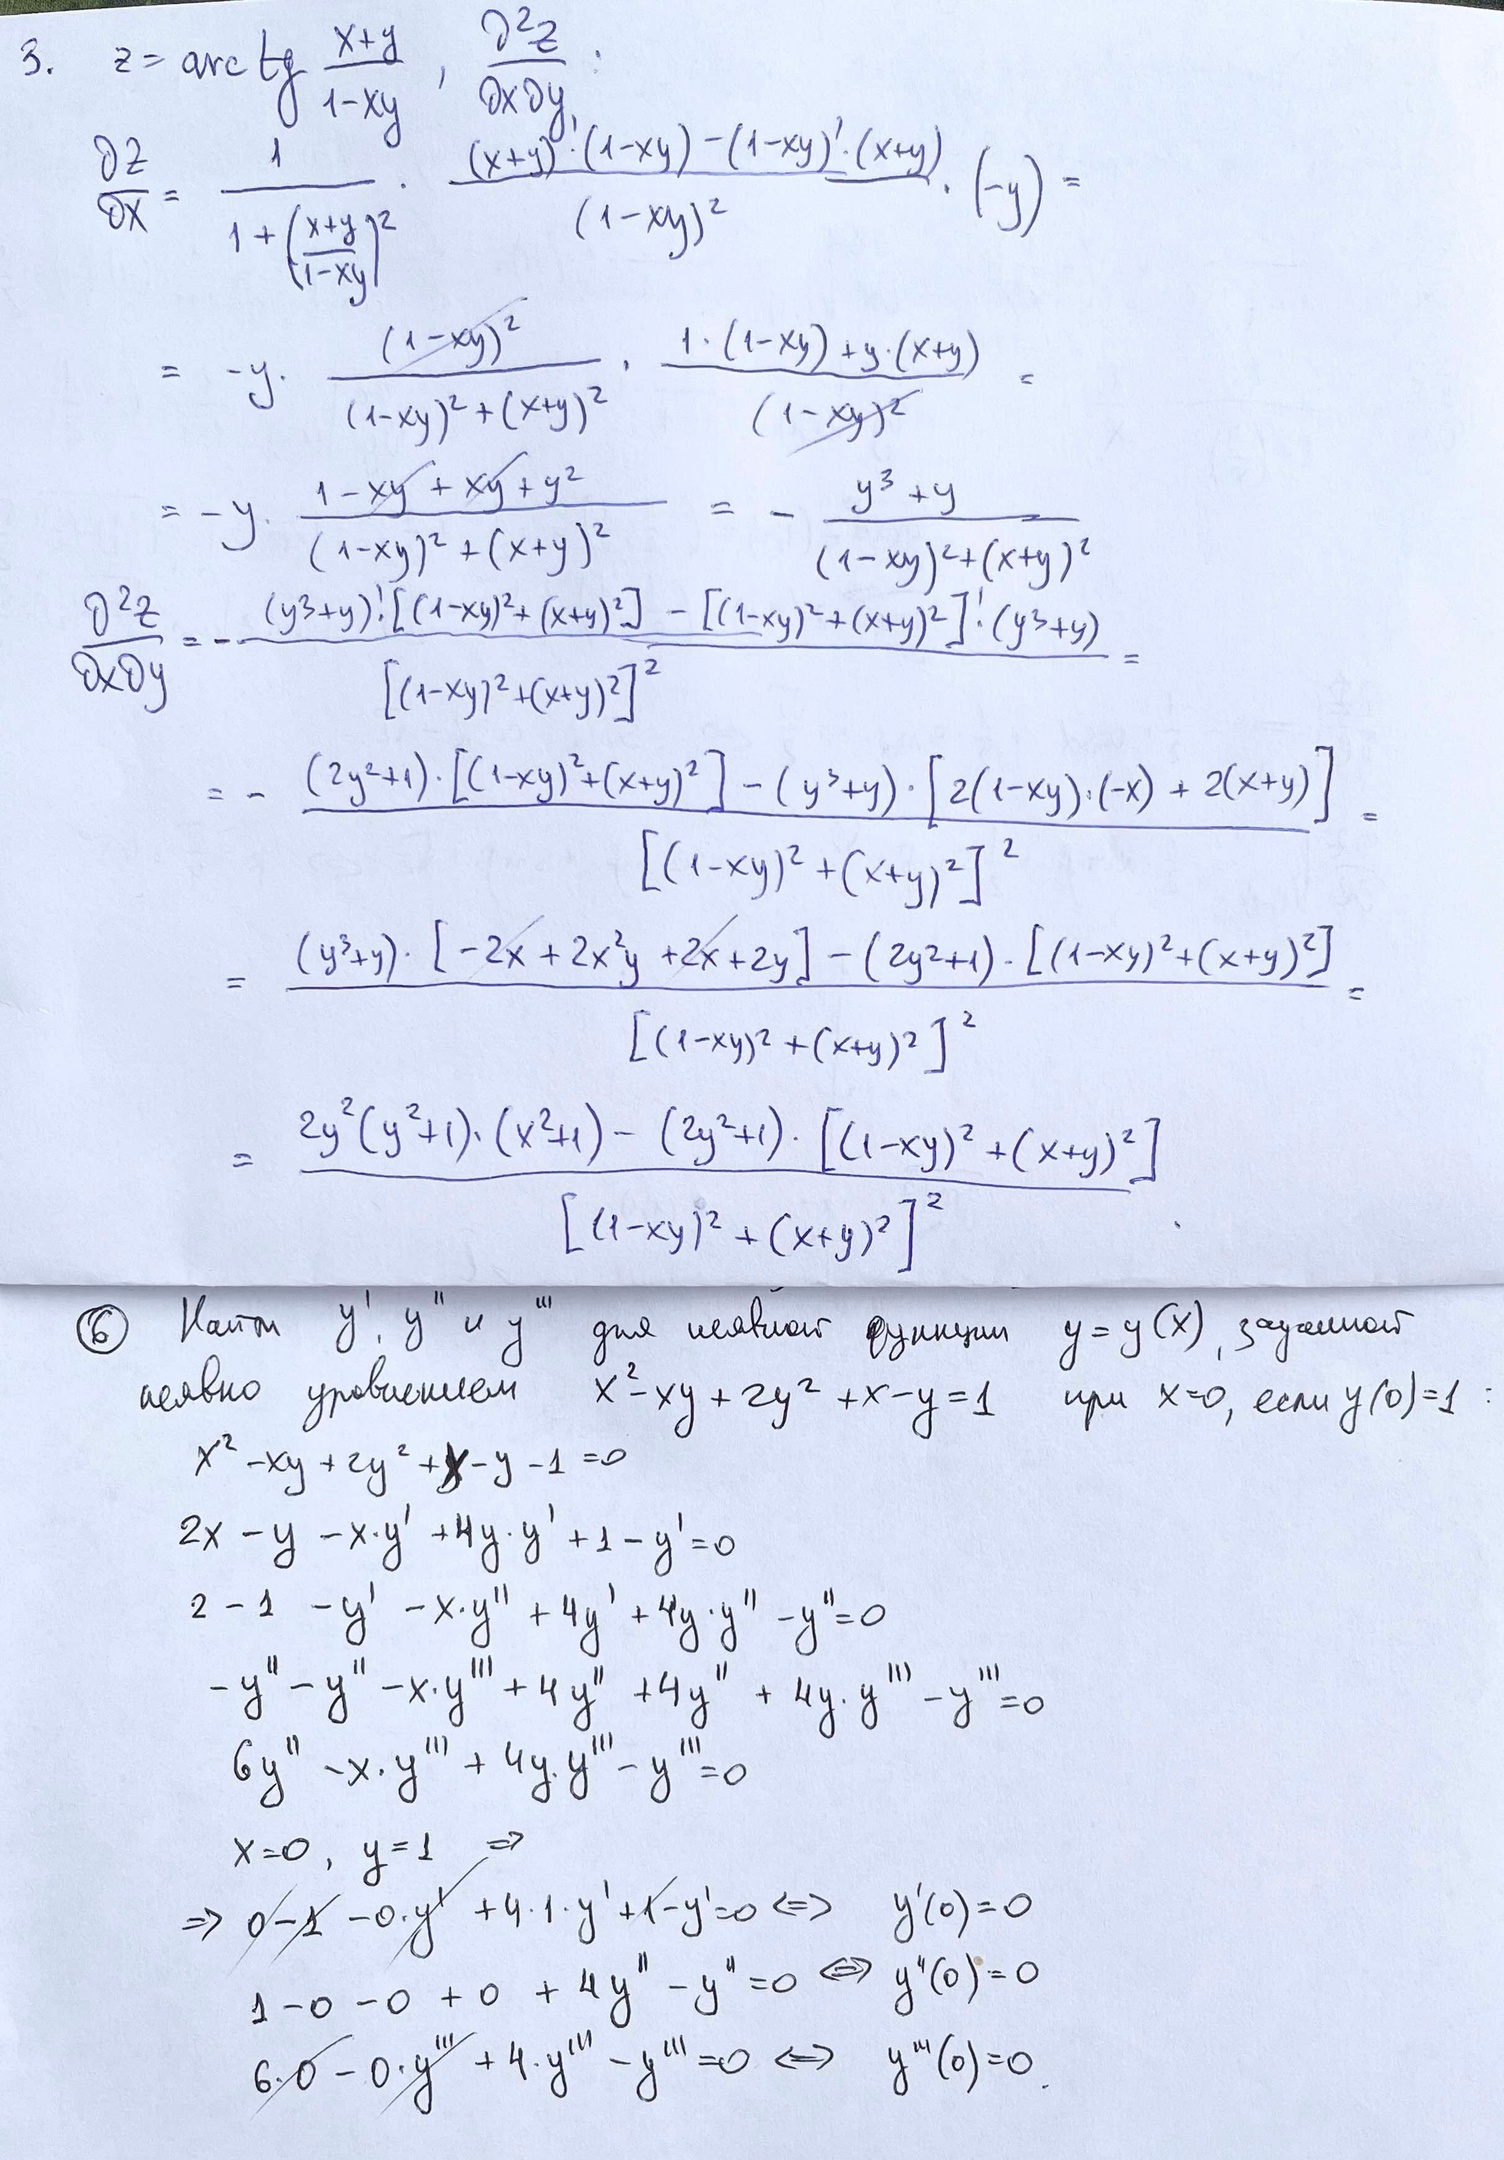 3. z = arctg (x+y)/(1-xy), ∂²z/∂x∂y:
∂z/∂x = 1/(1+((x+y)/(1-xy))²) · ((x+y)'·(1-xy) - (1-xy)'·(x+y))/(1-xy)² · (-y) =
= -y · (1-xy)²/((1-xy)²+(x+y)²) · (1·(1-xy)+y·(x+y))/(1-xy)² =
= -y · (1-xy+xy+y²)/((1-xy)²+(x+y)²) = - (y³+y)/((1-xy)²+(x+y)²)
∂²z/∂x∂y = - ((y³+y)'·[(1-xy)²+(x+y)²] - [(1-xy)²+(x+y)²]'·(y³+y))/[(1-xy)²+(x+y)²]² =
= - ((2y²+1)·[(1-xy)²+(x+y)²] - (y³+y)·[2(1-xy)·(-x) + 2(x+y)])/[(1-xy)²+(x+y)²]² =
= ((y³+y)·[-2x+2x²y+2x+2y] - (2y²+1)·[(1-xy)²+(x+y)²])/[(1-xy)²+(x+y)²]² =
= (2y²(y²+1)·(x²+1) - (2y²+1)·[(1-xy)²+(x+y)²])/[(1-xy)²+(x+y)²]²
⑥ Найти y', y'' и y''' для неявной функции y=y(x), заданной
неявно уравнением x²-xy+2y²+x-y=1 при x=0, если y(0)=1:
x²-xy+2y²+x-y-1=0
2x-y-x·y'+4y·y'+1-y'=0
2-1-y'-x·y''+4y'+4y·y''-y''=0
-y''-y''-x·y'''+4y''+4y''+4y·y'''-y'''=0
6y''-x·y'''+4y·y'''-y'''=0
x=0, y=1 ⇒
⇒ 0-1-0·y'+4·1·y'+1-y'=0 ⇔ y'(0)=0
1-0-0+0+4y''-y''=0 ⇔ y''(0)=0
6·0-0·y'''+4·y'''-y'''=0 ⇔ y'''(0)=0.